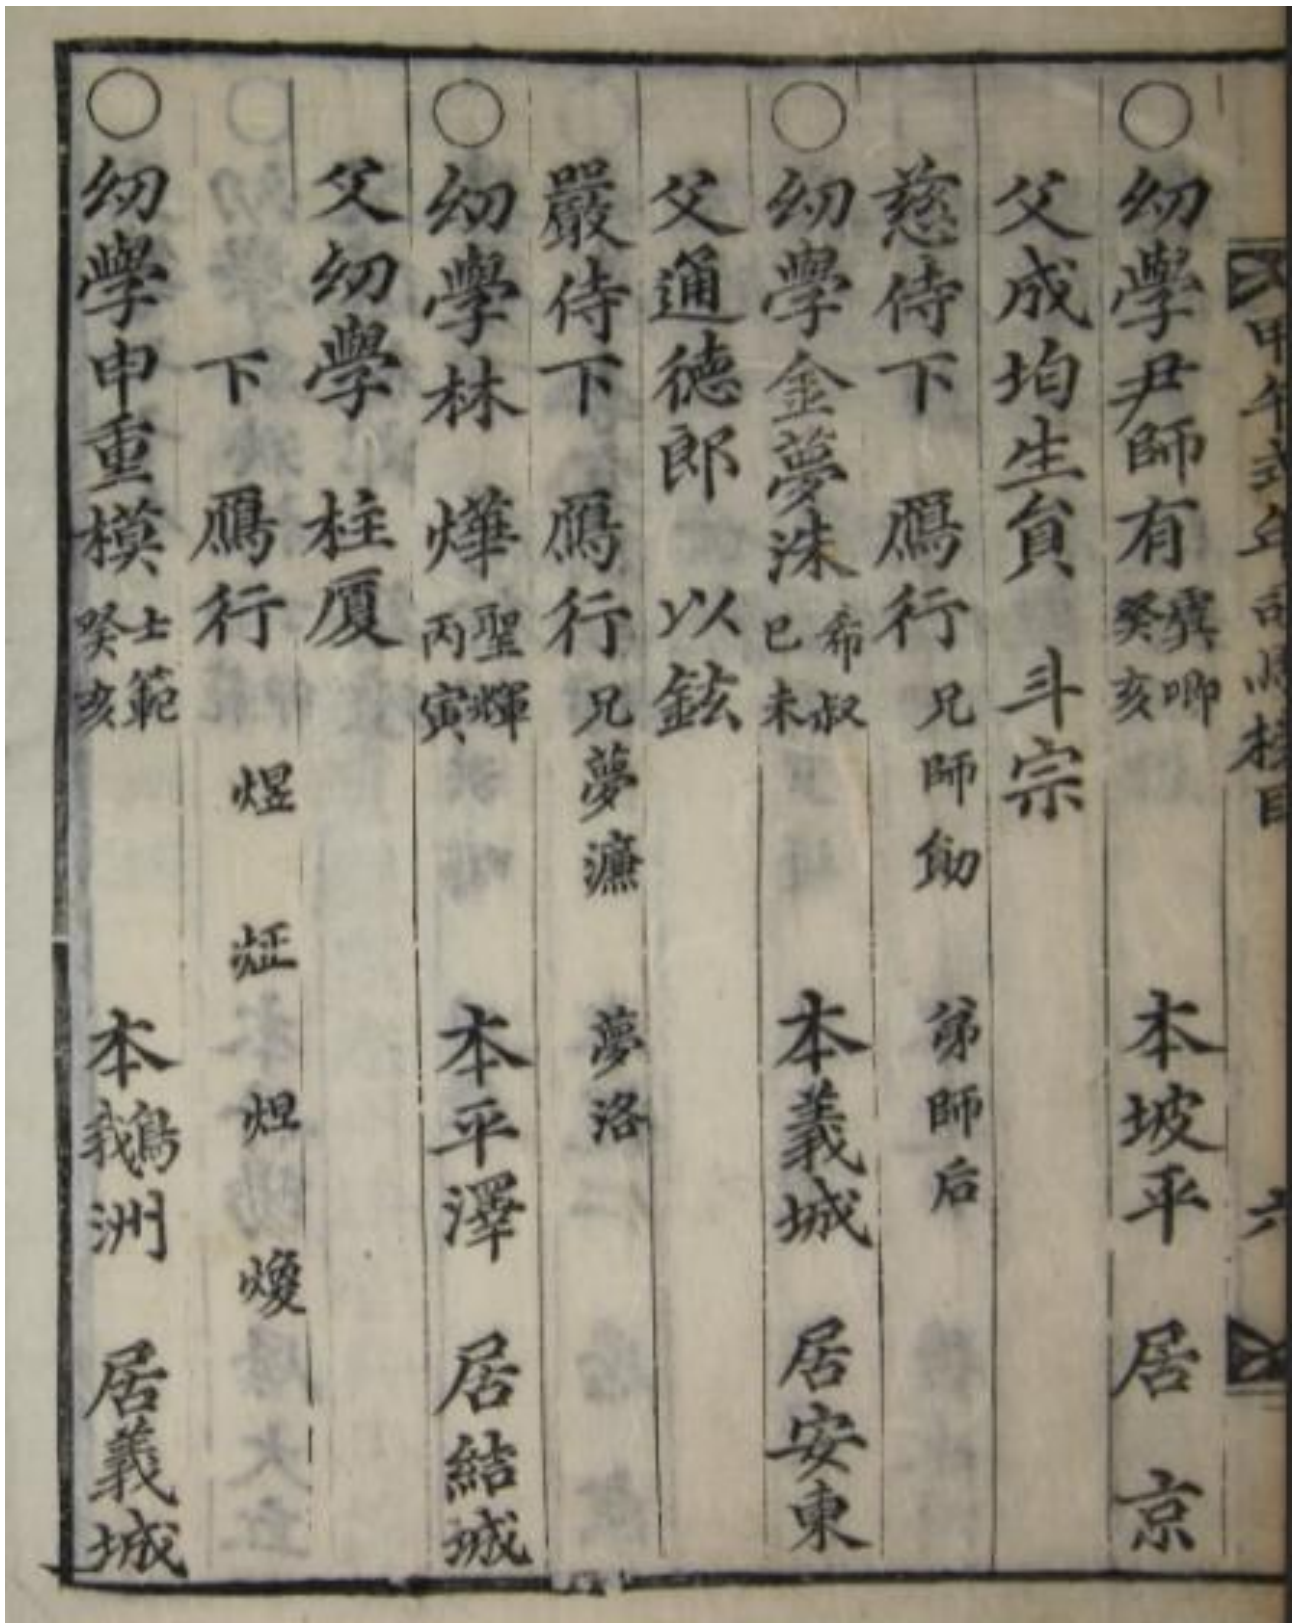 甲午式年司馬榜目 六
○幼學尹師有 癸亥 本坡平 居京
父成均生員 斗宗
慈侍下 鴈行 兄師勛 弟師后
○幼學金夢洙 希叔 己未 本義城 居安東
父通德郎 以鉉
嚴侍下 鴈行 兄夢濂 夢洛
○幼學林 燁 聖輝 丙寅 本平澤 居結城
父幼學 柱厦
下 鴈行 煜 炡 炟 煥
○幼學申重模 士範 癸亥 本鵝洲 居義城